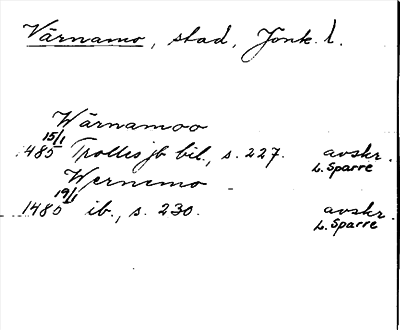 Värnamo, stad, Jönk. l.
Wärnamoo
15/1
1485 Trolles jb bil., s. 227. avskr.
L. Sparre
Wernemo
19/1
1480 ib., s. 230. avskr.
L. Sparre